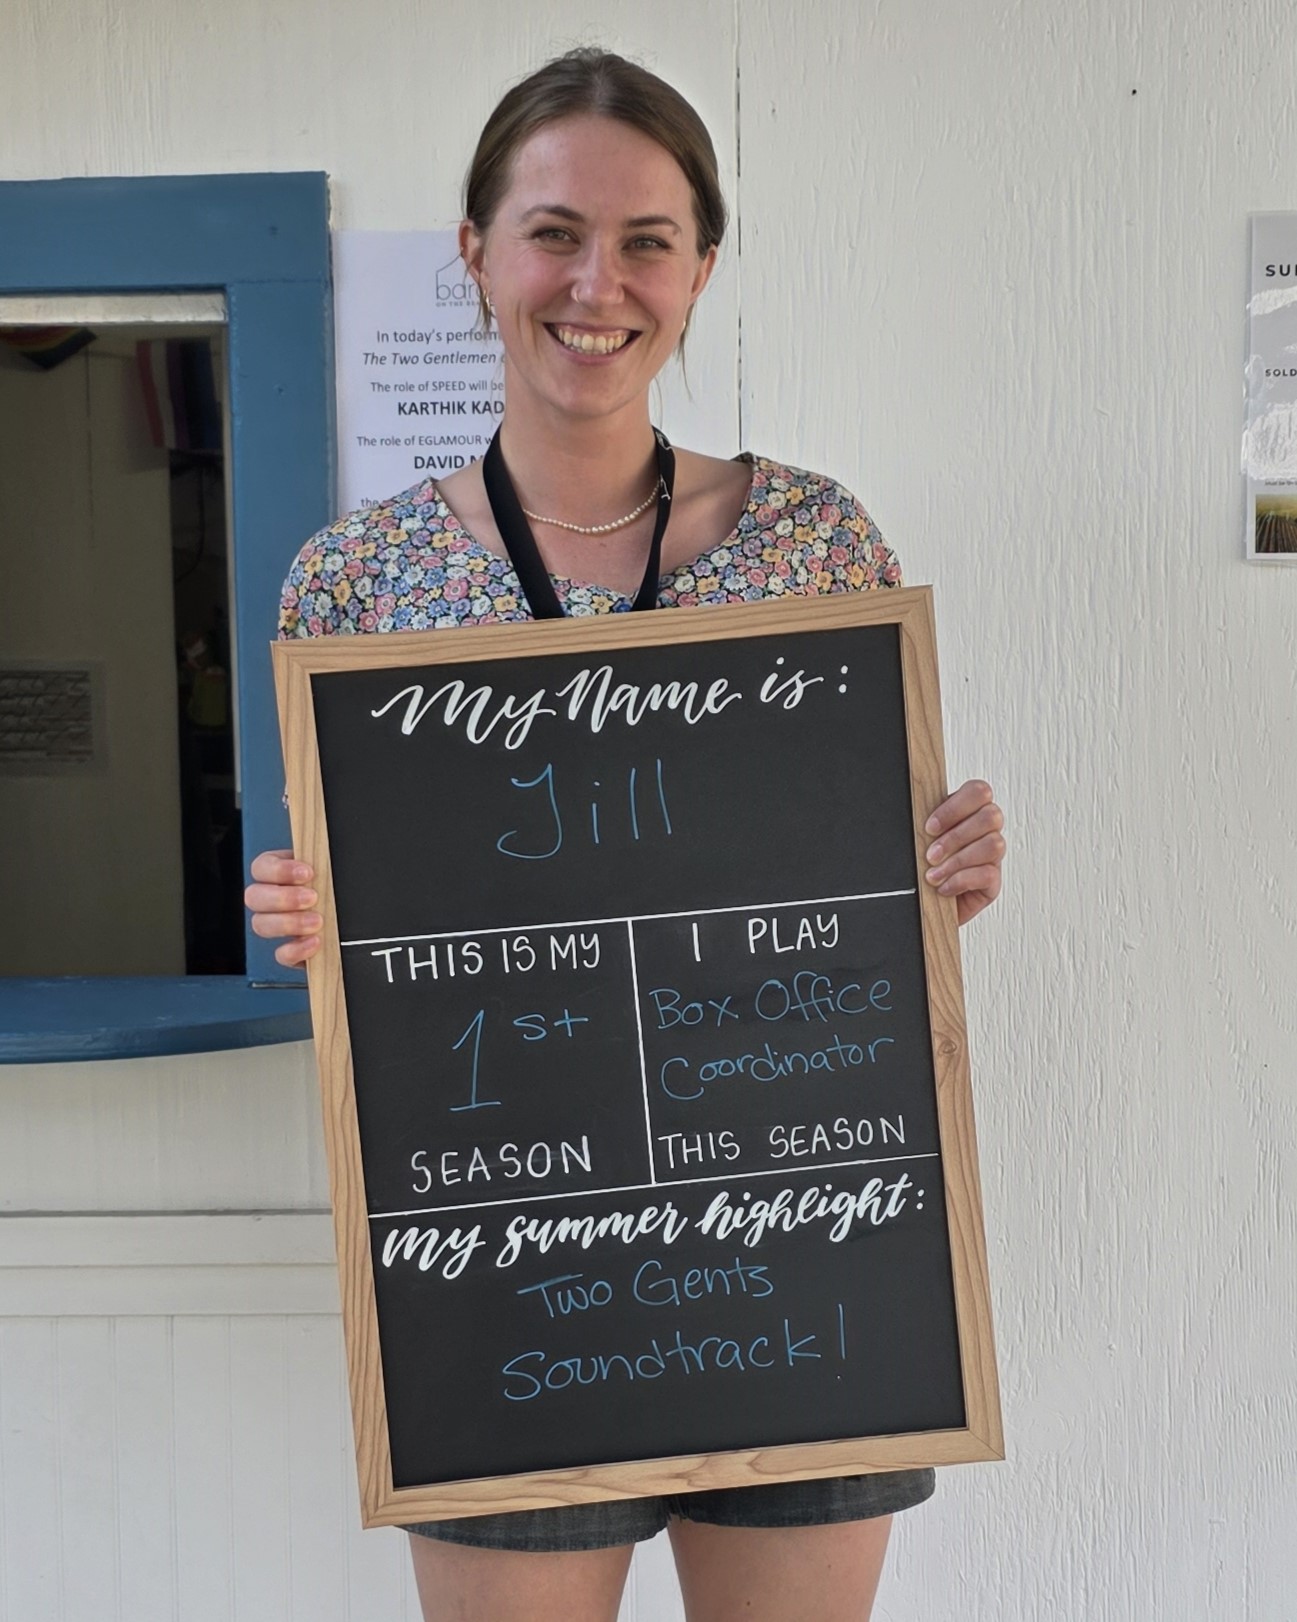 ON THE
In today's
The Two Gentlemen
The role of SPEED will be
KARTHIK
The role of EGLAMOUR
DAVID
the
SOLD
My Name is:
Jill
THIS IS MY
1st
SEASON
I PLAY
Box Office
Coordinator
THIS SEASON
my summer highlight:
Two Gents
Soundtrack!